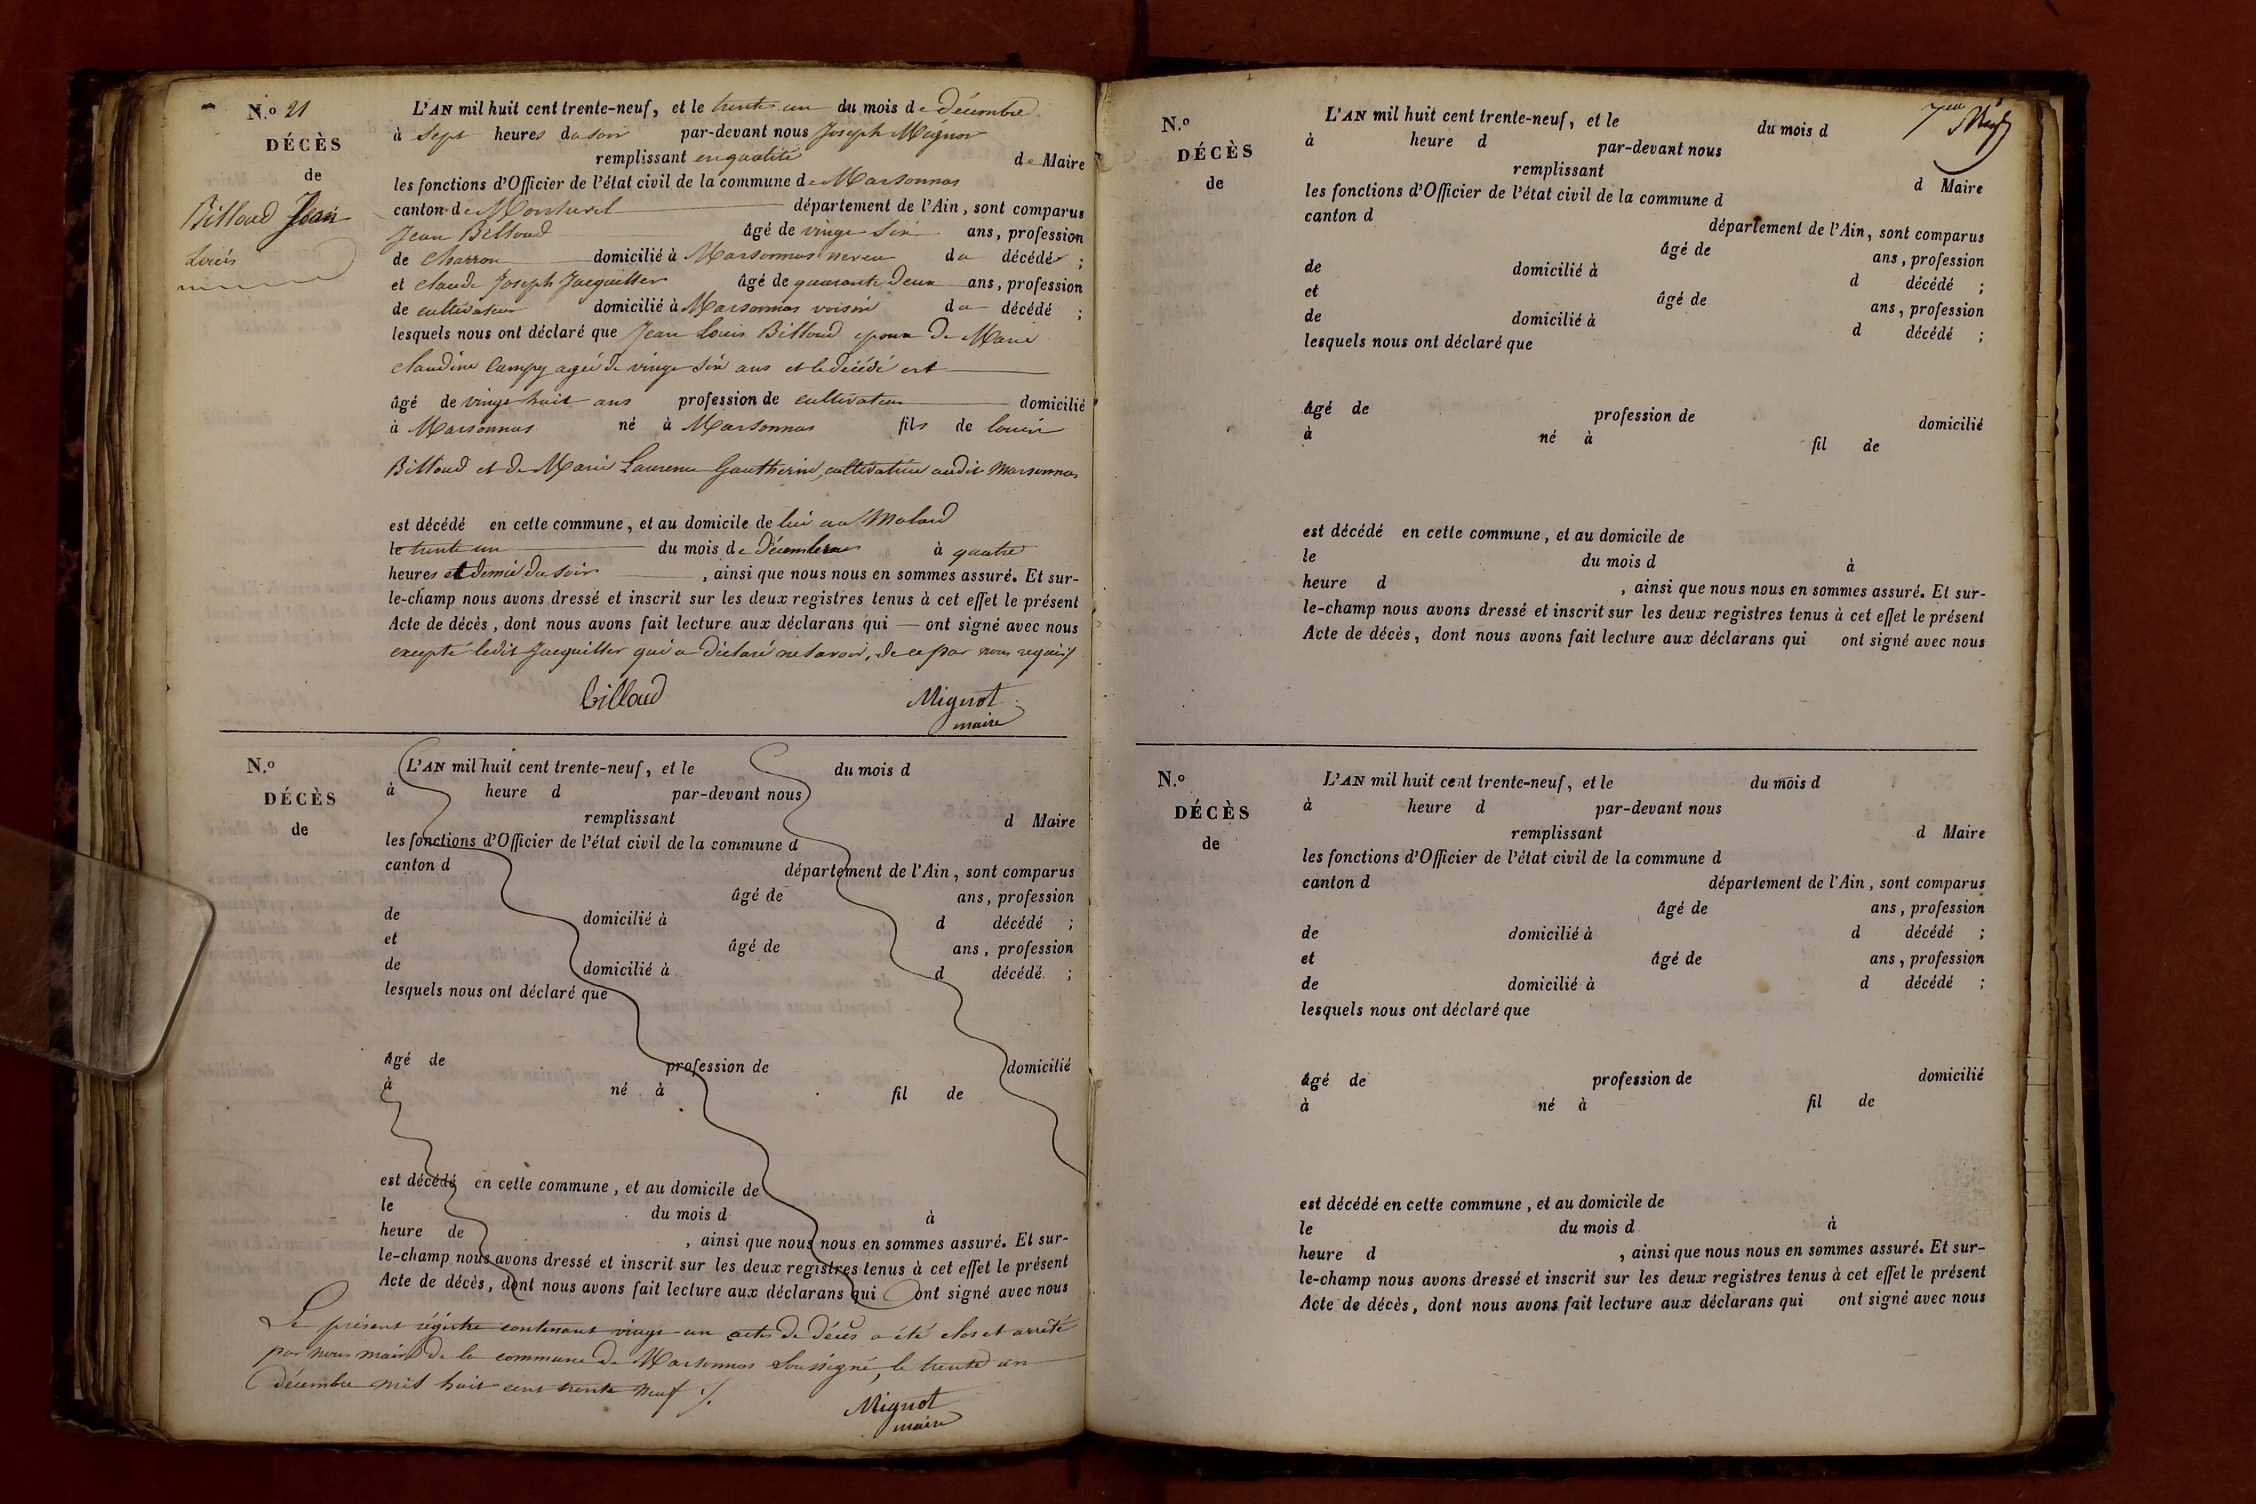 N.º 21
DÉCÈS
de
Billoud Jean
Louis
L'AN mil huit cent trente-neuf, et le trente un du mois de Décembre
à Sept heures du soir par-devant nous Joseph Mignot
remplissant en qualité de Maire
les fonctions d'Officier de l'état civil de la commune de Marsonnas
canton de Montrevel département de l'Ain, sont comparus
Jean Billoud âgé de vingt six ans, profession
de Charron domicilié à Marsonnas neveu du décédé ;
et claude Joseph Jacquiller âgé de quarante deux ans, profession
de cultivateur domicilié à Marsonnas voisin du décédé ;
lesquels nous ont déclaré que Jean Louis Billoud epoux de Marie
claudine Campy agée de vingt six ans et le décédé est
âgé de vingt huit ans profession de cultivateur domicilié
à Marsonnas né à Marsonnas fils de louis
Billoud et de Marie Laurence Gautherin, cultivatrice audit Marsonnas
est décédé en cette commune, et au domicile de lui au Molard
le trente un du mois de Décembre à quatre
heures et demie du soir , ainsi que nous nous en sommes assuré. Et sur-
le-champ nous avons dressé et inscrit sur les deux registres tenus à cet effet le présent
Acte de décès, dont nous avons fait lecture aux déclarans qui ont signé avec nous
excepté ledit Jacquiller qui a déclaré ne savoir, de ce par nous requis
billoud Mignot
maire
N.º
DÉCÈS
de
L'AN mil huit cent trente-neuf, et le du mois d
à heure d par-devant nous
remplissant d Maire
les fonctions d'Officier de l'état civil de la commune d
canton d département de l'Ain, sont comparus
âgé de ans, profession
de domicilié à d décédé ;
et âgé de ans, profession
de domicilié à d décédé ;
lesquels nous ont déclaré que
âgé de profession de domicilié
à né à fil de
est décédé en cette commune, et au domicile de
le du mois d à
heure de , ainsi que nous nous en sommes assuré. Et sur-
le-champ nous avons dressé et inscrit sur les deux registres tenus à cet effet le présent
Acte de décès, dont nous avons fait lecture aux déclarans qui ont signé avec nous
Le présent régistre contenant vingt un actes de décès a été clos et arrêté
par nous maire de la commune de Marsonnas soussigné, le trente un
décembre mil huit cent trente neuf
Mignot
maire
N.º
DÉCÈS
de
L'AN mil huit cent trente-neuf, et le du mois d
à heure d par-devant nous
remplissant d Maire
les fonctions d'Officier de l'état civil de la commune d
canton d département de l'Ain, sont comparus
âgé de ans, profession
de domicilié à d décédé ;
et âgé de ans, profession
de domicilié à d décédé ;
lesquels nous ont déclaré que
âgé de profession de domicilié
à né à fil de
est décédé en cette commune, et au domicile de
le du mois d à
heure d , ainsi que nous nous en sommes assuré. Et sur-
le-champ nous avons dressé et inscrit sur les deux registres tenus à cet effet le présent
Acte de décès, dont nous avons fait lecture aux déclarans qui ont signé avec nous
N.º
DÉCÈS
de
L'AN mil huit cent trente-neuf, et le du mois d
à heure d par-devant nous
remplissant d Maire
les fonctions d'Officier de l'état civil de la commune d
canton d département de l'Ain, sont comparus
âgé de ans, profession
de domicilié à d décédé ;
et âgé de ans, profession
de domicilié à d décédé ;
lesquels nous ont déclaré que
âgé de profession de domicilié
à né à fil de
est décédé en cette commune, et au domicile de
le du mois d à
heure d , ainsi que nous nous en sommes assuré. Et sur-
le-champ nous avons dressé et inscrit sur les deux registres tenus à cet effet le présent
Acte de décès, dont nous avons fait lecture aux déclarans qui ont signé avec nous